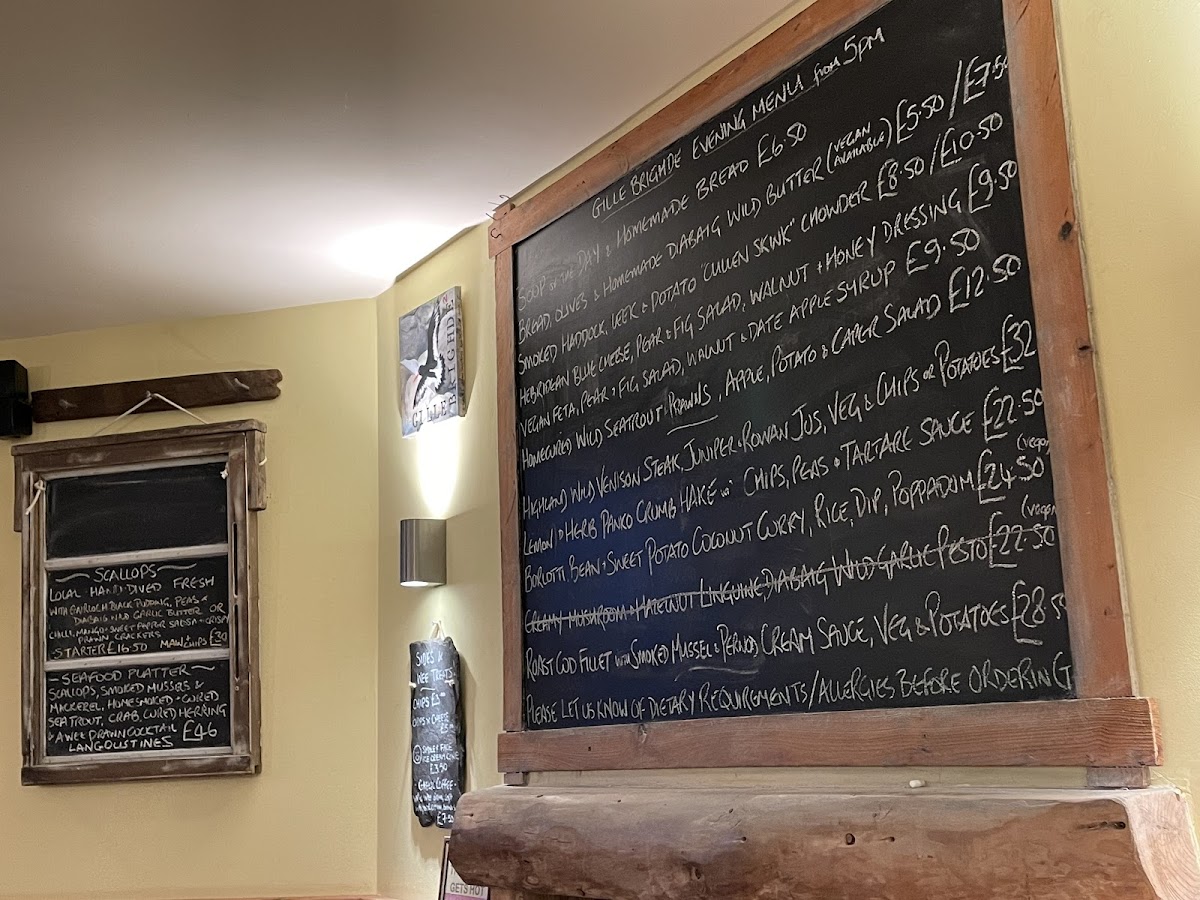 GILLE BRIGHDE EVENING MENU from 5PM
SOUP OF THE DAY & HOMEMADE BREAD £6.50
BREAD, OLIVES & HOMEMADE DIABAIG WILD BUTTER (VEGAN AVAILABLE) £5.50/£7.50
SMOKED HADDOCK, LEEK & POTATO "CULLEN SKINK" CHOWDER £8.50/£10.50
HEBRIDEAN BLUE CHEESE, PEAR & FIG SALAD, WALNUT + HONEY DRESSING £9.50
VEGAN FETA, PEAR + FIG SALAD, WALNUT & DATE APPLE SYRUP £9.50
HOMECURED WILD SEATROUT & PRAWNS, APPLE, POTATO & CAPER SALAD £12.50
HIGHLAND WILD VENISON STEAK, JUNIPER & ROWAN JUS, VEG & CHIPS OR POTATOES £32
LEMON & HERB PANKO CRUMB HAKE w' CHIPS, PEAS & TARTARE SAUCE £22.50
BORLOTTI BEAN + SWEET POTATO COCONUT CURRY, RICE, DIP, POPPADOM £24.50 (vegan
CREAMY MUSHROOM + HAZELNUT LINGUINE DIABAIG WILD GARLIC PESTO £22.50 (vegan
ROAST COD FILLET with SMOKED MUSSEL & PERNOD CREAM SAUCE, VEG & POTATOES £28.5
PLEASE LET US KNOW OF DIETARY REQUIREMENTS/ALLERGIES BEFORE ORDERING
GILLE BRIGHDE
SCALLOPS
LOCAL HAND-DIVED FRESH
WITH GAIRLOCH BLACK PUDDING, PEAS &
DIABAIG WILD GARLIC BUTTER OR
CHILLI, MANGO + SWEET PEPPER SALSA + CRISPY
PRAWN CRACKERS
STARTER £16.50 MAIN + CHIPS £30
SEAFOOD PLATTER
SCALLOPS, SMOKED MUSSELS &
MACKEREL, HOMESMOKED + CURED
SEA TROUT, CRAB, CURED HERRING
& A WEE PRAWN COCKTAIL
LANGOUSTINES £46
SIDES &
WEE TREATS
CHIPS £5
CHIPS + CHEESE
SMILEY FACE
ICE CREAM CONE
£3.50
GAELIC COFFEE
£7.50
GETS HOT